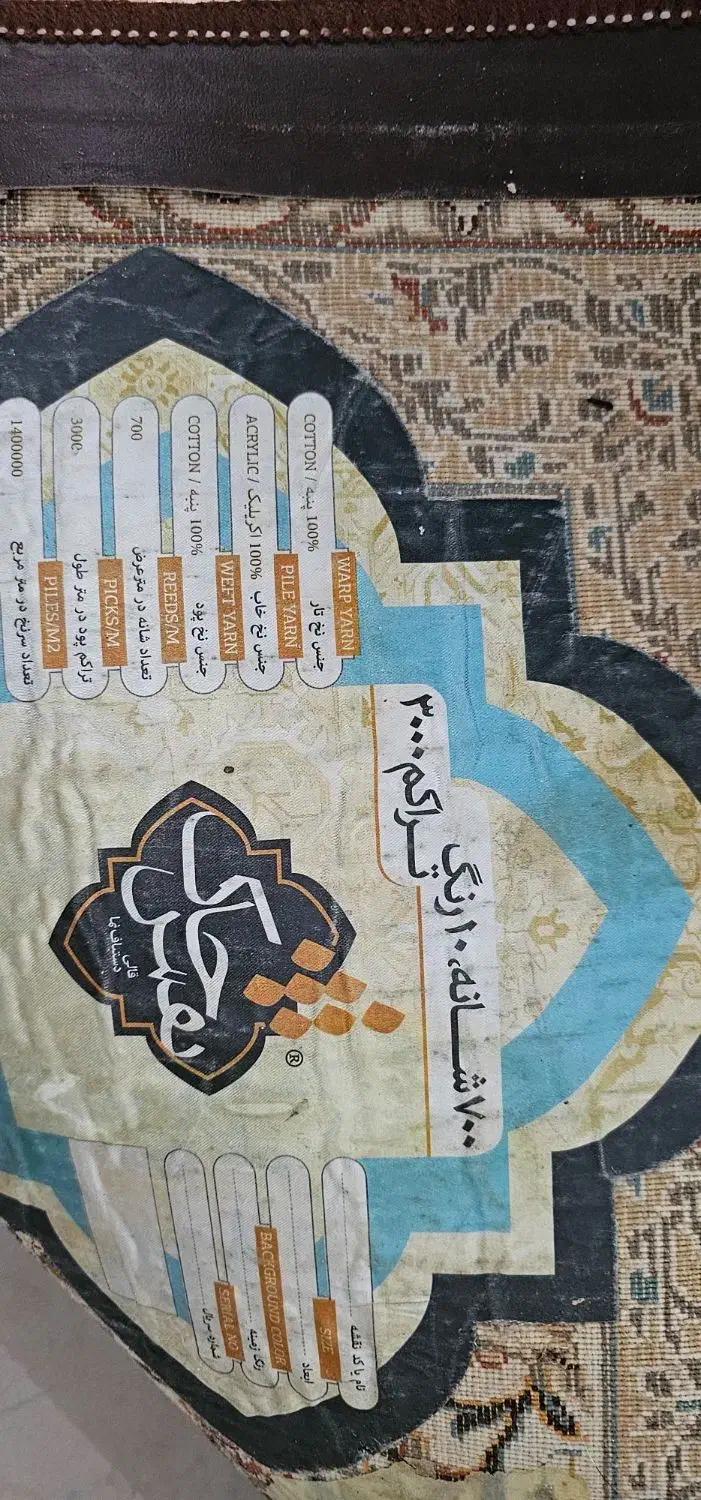 ۷۰۰ شانه، ۱۰ رنگ
تراکم ۳۰۰۰
®
قالی
دستباف نما
نام یا کد نقشه
SIZE
ابعاد
BACKGROUND COLOR
رنگ زمینه
SERIAL NO
شماره سریال
WARP YARN
جنس نخ تار 100% پنبه / COTTON
PILE YARN
جنس نخ خاب 100% اکریلیک / ACRYLIC
WEFT YARN
جنس نخ پود 100% پنبه / COTTON
REEDS/M
تعداد شانه در متر عرض 700
PICKS/M
تراکم پود در متر طول 3000
PILES/M2
تعداد سرنخ در متر مربع 1400000